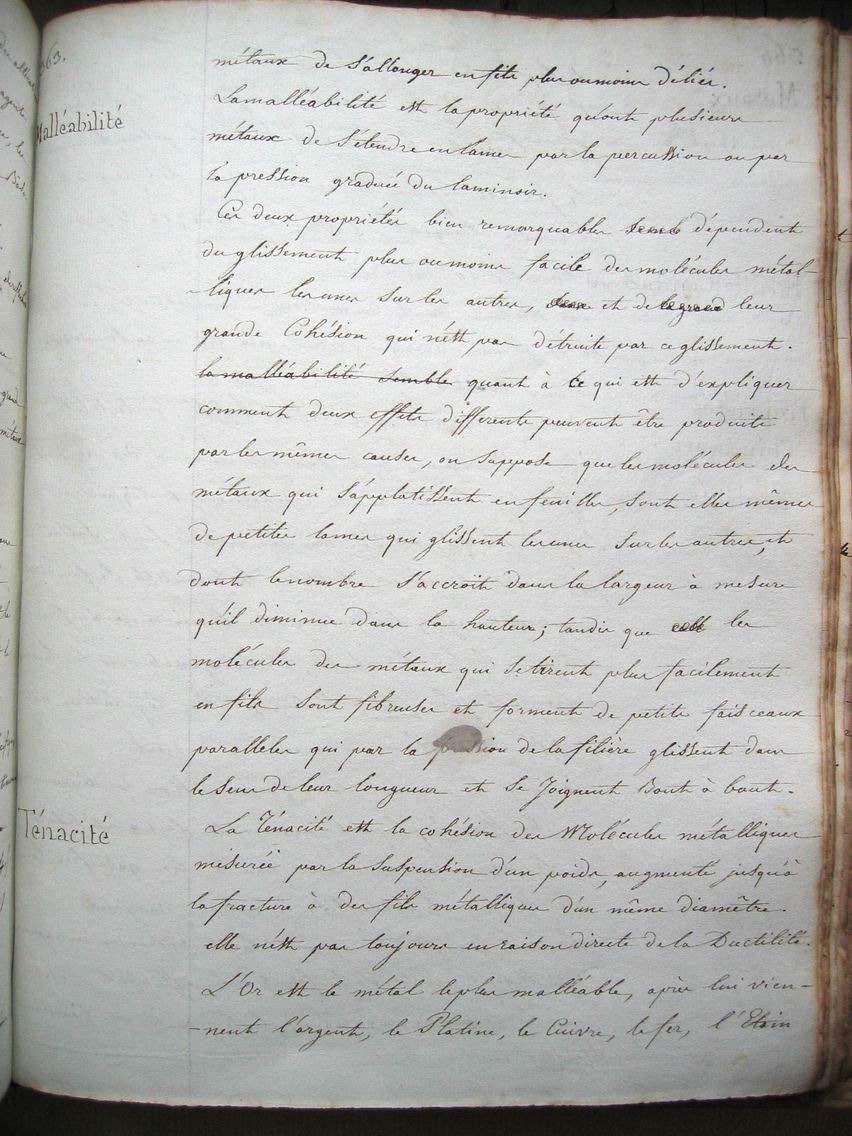 63.
métaux de s'allonger en fils plus ou moins déliés.
Malléabilité
La malléabilité est la propriété qu'ont plusieurs
métaux de s'étendre en lames par la percussion ou par
la pression graduée du laminoir.
Ces deux propriétés bien remarquables dépendent
du glissement plus ou moins facile des molécules métal-
-liques les unes sur les autres, et de leur
grande Cohésion qui n'est pas détruite par ce glissement.
la malléabilité semble quant à ce qui est d'expliquer
comment deux effets différents peuvent être produits
par les mêmes causes, on suppose que les molécules des
métaux qui s'applatissent en feuilles, sont elles mêmes
de petites lames qui glissent les unes sur les autres, et
dont le nombre s'accroît dans la largeur à mesure
qu'il diminue dans la hauteur; tandis que les
molécules des métaux qui se tirent plus facilement
en fils sont fibreuses et forment de petits faisceaux
paralleles qui par la pression de la filière glissent dans
le sens de leur longueur et se Joignent Bout à bout.
Ténacité
La Ténacité est la cohésion des Molécules métalliques
mésurée par la suspension d'un poids, augmenté jusqu'à
la fracture à des fils métalliques d'un même diamêtre.
elle n'est pas toujours en raison directe de la Ductilité.
L'Or est le métal le plus malléable, après lui vien-
-nent l'argent, le Platine, le Cuivre, le fer, l'Etain